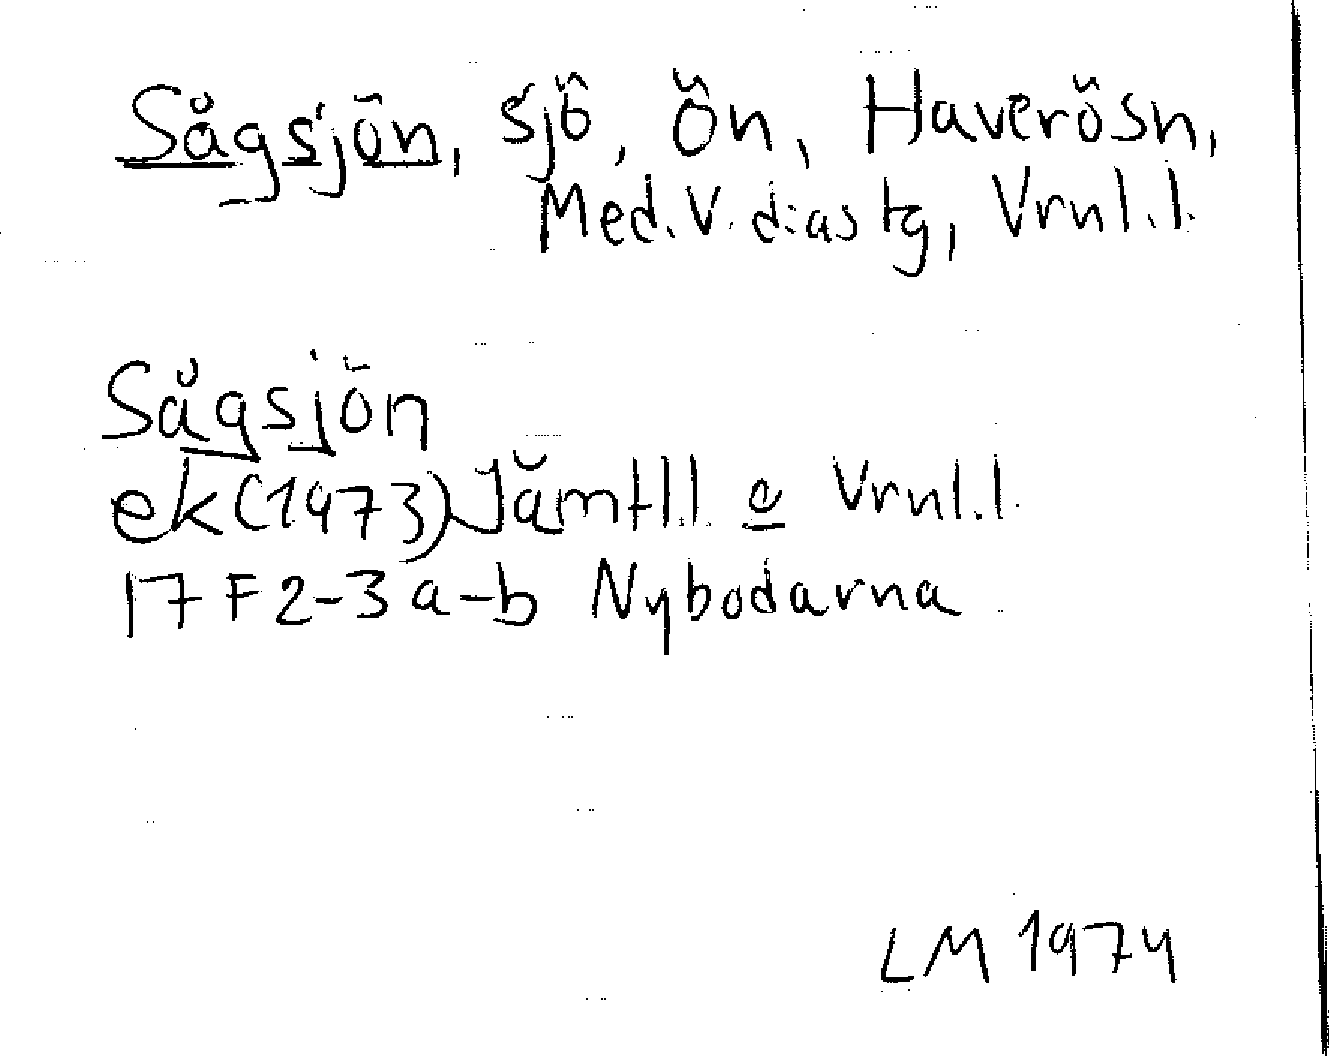 Sågsjön, sjö, Ön, Haverösn,
Med.V.d:as tg, Vrnl.l.
Sågsjön
ek(1973) Jämtl.l. o Vrnl.l.
17 F 2-3 a-b Nybodarna
LM 1974